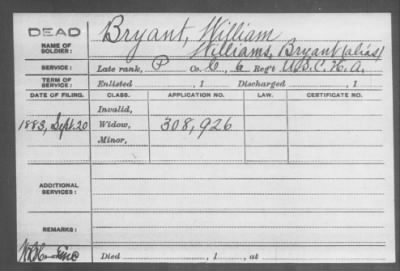 DEAD
NAME OF SOLDIER: Bryant, William
Williams, Bryant (alias)
SERVICE: Late rank, P Co. C, 6 Reg't U.S.C.H.A.
TERM OF SERVICE: Enlisted , 1 Discharged , 1
DATE OF FILING. CLASS. APPLICATION NO. LAW. CERTIFICATE NO.
Invalid,
1883, Sept. 20 Widow, 308,926
Minor,
ADDITIONAL SERVICES:
REMARKS:
Died , 1 , at